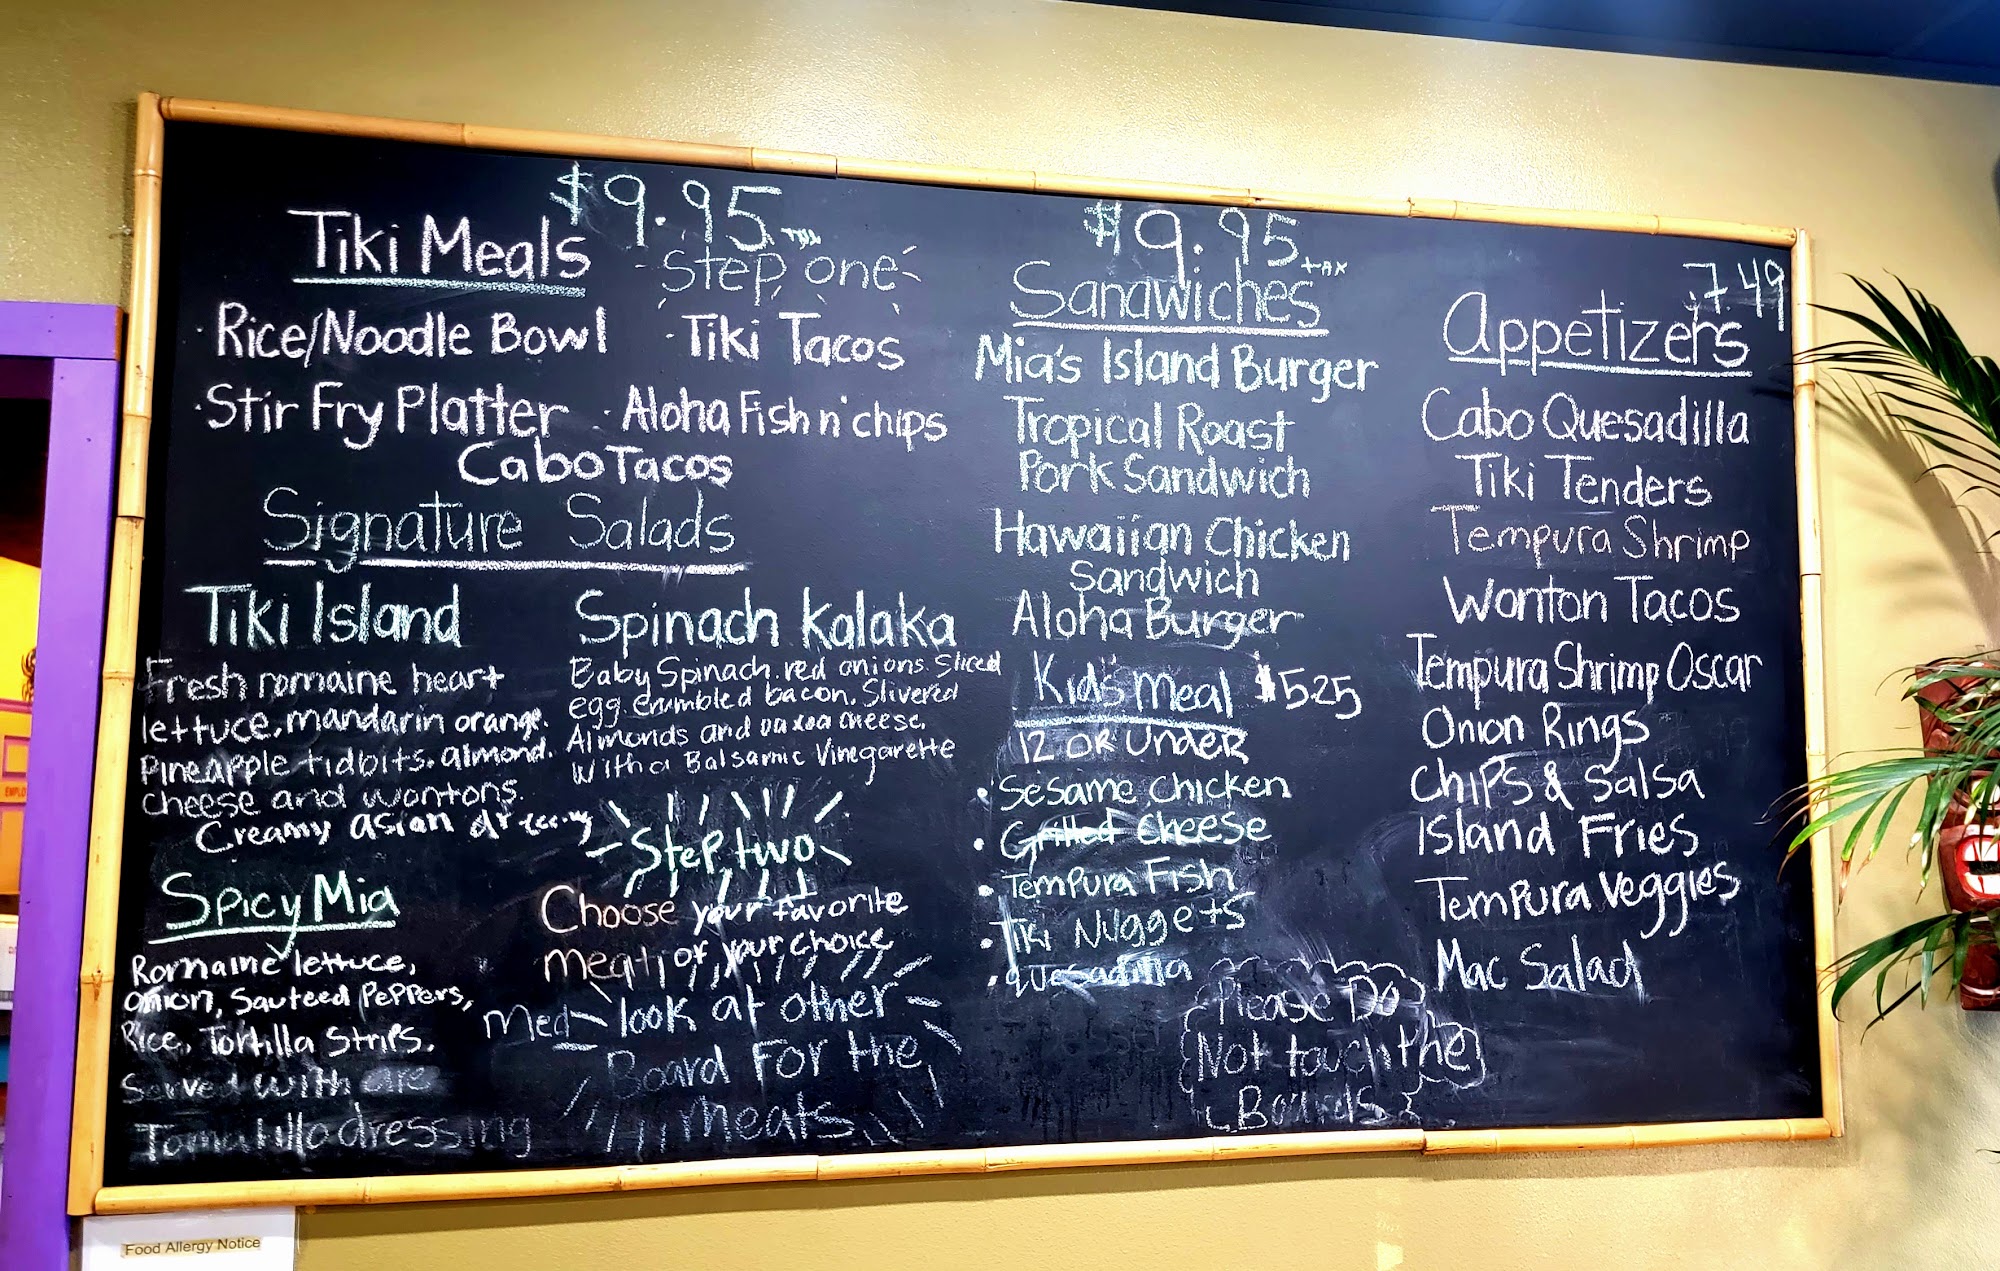 Tiki Meals $9.95
- Step one -
· Rice/Noodle Bowl · Tiki Tacos
· Stir Fry Platter · Aloha Fish n' chips
Cabo Tacos
Signature Salads
Tiki Island
Fresh romaine heart
lettuce, mandarin orange.
Pineapple tidbits. almond.
cheese and wontons.
Creamy asian
Spinach Kalaka
Baby Spinach. red onions. Sliced
egg. crumbled bacon. Slivered
Almonds and cheese.
With a Balsamic Vinegarette
Spicy Mia
Romaine lettuce,
onion, Sauteed Peppers,
Rice, Tortilla Strips.
Served with
Tomatillo dressing
Step two
Choose your favorite
meat, of your choice
look at other
Board For the
meats
$9.95 +tax
Sandwiches
Mia's Island Burger
Tropical Roast
Pork Sandwich
Hawaiian Chicken
Sandwich
Aloha Burger
Kid's Meal $5.25
12 OR UNDER
· Sesame Chicken
· Grilled Cheese
· Tempura Fish
· Tiki Nuggets
· quesadilla
Please Do
Not touch the
Boards
$7.49
Appetizers
Cabo Quesadilla
Tiki Tenders
Tempura Shrimp
Wonton Tacos
Tempura Shrimp Oscar
Onion Rings
Chips & Salsa
Island Fries
Tempura Veggies
Mac Salad
Food Allergy Notice